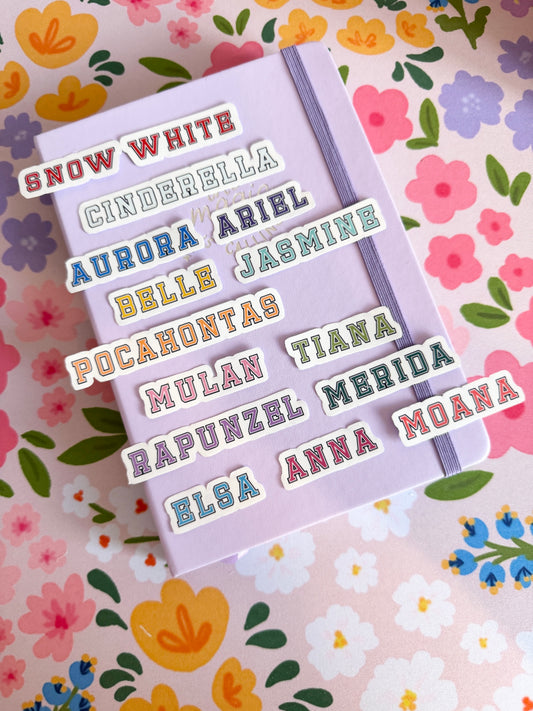 SNOW WHITE
CINDERELLA
ARIEL
AURORA
JASMINE
BELLE
POCAHONTAS
TIANA
MULAN
MERIDA
RAPUNZEL
MOANA
ANNA
ELSA